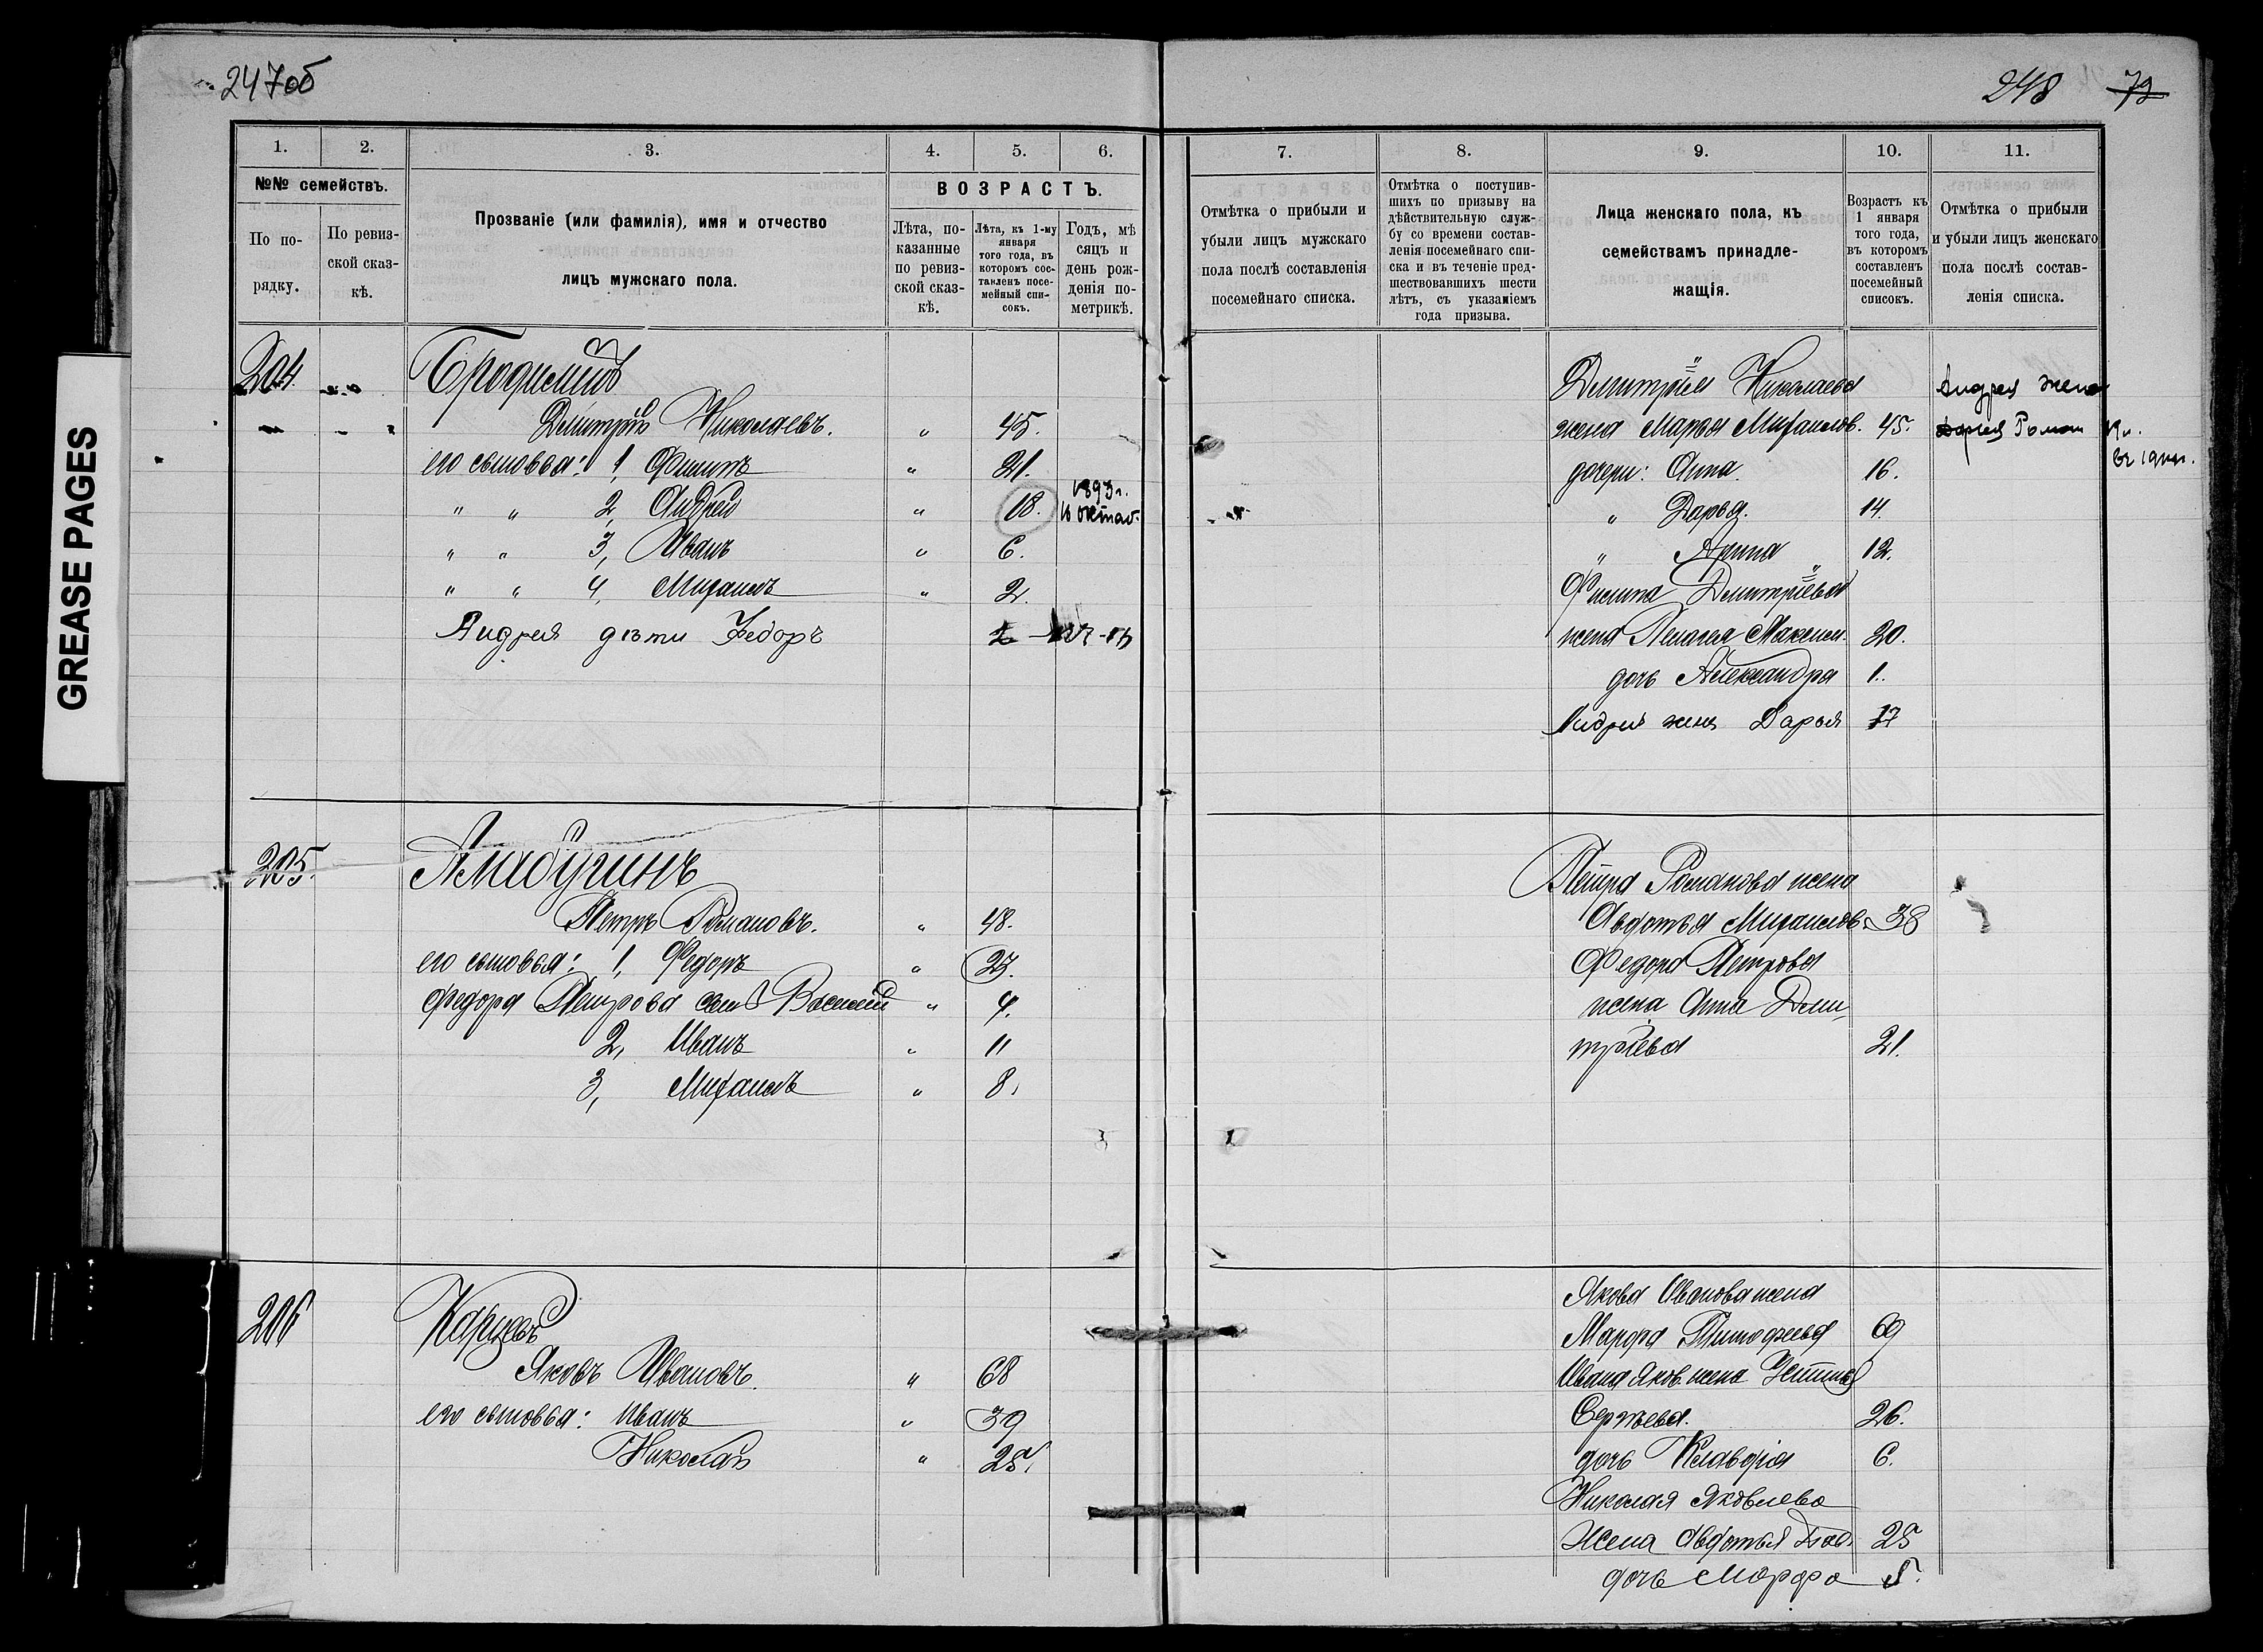 247об
248 72
GREASE PAGES
1. 2. 3. 4. 5. 6.
№№ семействъ.
По по-
рядку.
По ревиз-
ской сказ-
кѣ.
Прозваніе (или фамилія), имя и отчество
лицъ мужскаго пола.
ВОЗРАСТЪ.
Лѣта, по-
казанные
по ревиз-
ской сказ-
кѣ.
Лѣта, къ 1-му
января
того года, въ
которомъ сос-
тавленъ посе-
мейный спи-
сокъ.
Годъ, мѣ
сяцъ и
день рож-
денія по-
метрикѣ.
204
Дмитрій Николаевъ. " 45.
его сыновья: 1, Филипъ " 21.
" " 2, Андрей " 18. 1893г. 16 октяб.
" " 3, Иванъ " 6.
" " 4, Михаилъ " 2.
Андрея дѣти Федоръ
205.
Алабугинъ
Петръ Романовъ. " 48.
его сыновья: 1, Федоръ " 23.
Федора Петрова сынъ Василій " 4.
2, Иванъ " 11
3, Михаилъ " 8.
206
Карцевъ
Яковъ Ивановъ. " 68
его сыновья: Иванъ " 39
Николай " 28.
7. 8. 9. 10. 11.
Отмѣтка о прибыли и
убыли лицъ мужскаго
пола послѣ составленія
посемейнаго списка.
Отмѣтка о поступив-
шихъ по призыву на
дѣйствительную служ-
бу со времени состав-
ленія посемейнаго спи-
ска и въ теченіе пред-
шествовавшихъ шести
лѣтъ, съ указаніемъ
года призыва.
Лица женскаго пола, къ
семействамъ принадле-
жащія.
Возрастъ къ
1 января
того года,
въ которомъ
составленъ
посемейный
списокъ.
Отмѣтка о прибыли
и убыли лицъ женскаго
пола послѣ состав-
ленія списка.
Дмитрія Николаева Андрея жена
жена Марья Михаилов. 45. Дарья Роман
дочери: Анна. 16.
" Дарья. 14.
" Арина 12.
Филипа Дмитріева
жена Пелагея Максим. 20.
дочь Александра 1.
Андрея жена Дарья 17
Петра Романова жена
Авдотья Михаилов. 38
Федора Петрова
жена Анна Дми,
тріева 21.
Якова Иванова жена
Марфа Тимофеева 69
Ивана Яков. жена Устинья
Сергѣева. 26.
дочь Клавдія 6.
Николая Яковлева
жена Авдотья 25
дочь Марфа 5.